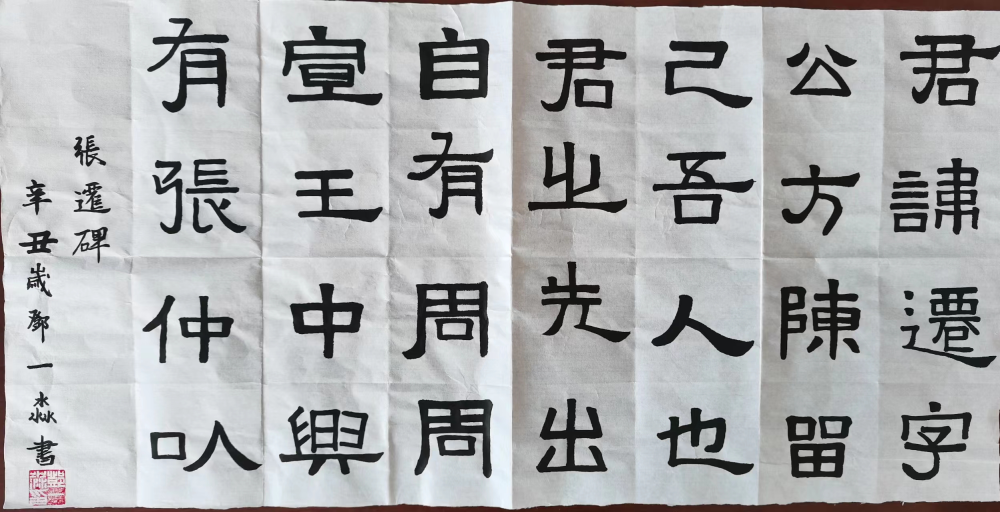 君諱遷字
公方陳留
己吾人也
君之先出
自有周周
宣王中興
有張仲㕥
張遷碑
辛丑歲鄧一淼書